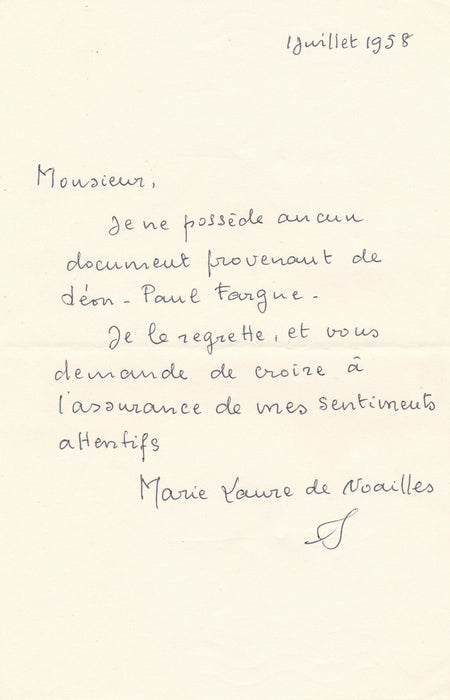 1 Juillet 1958
Monsieur,
Je ne possède aucun
document provenant de
Léon - Paul Fargue -
Je le regrette, et vous
demande de croire à
l'assurance de mes sentiments
attentifs
Marie Laure de Noailles